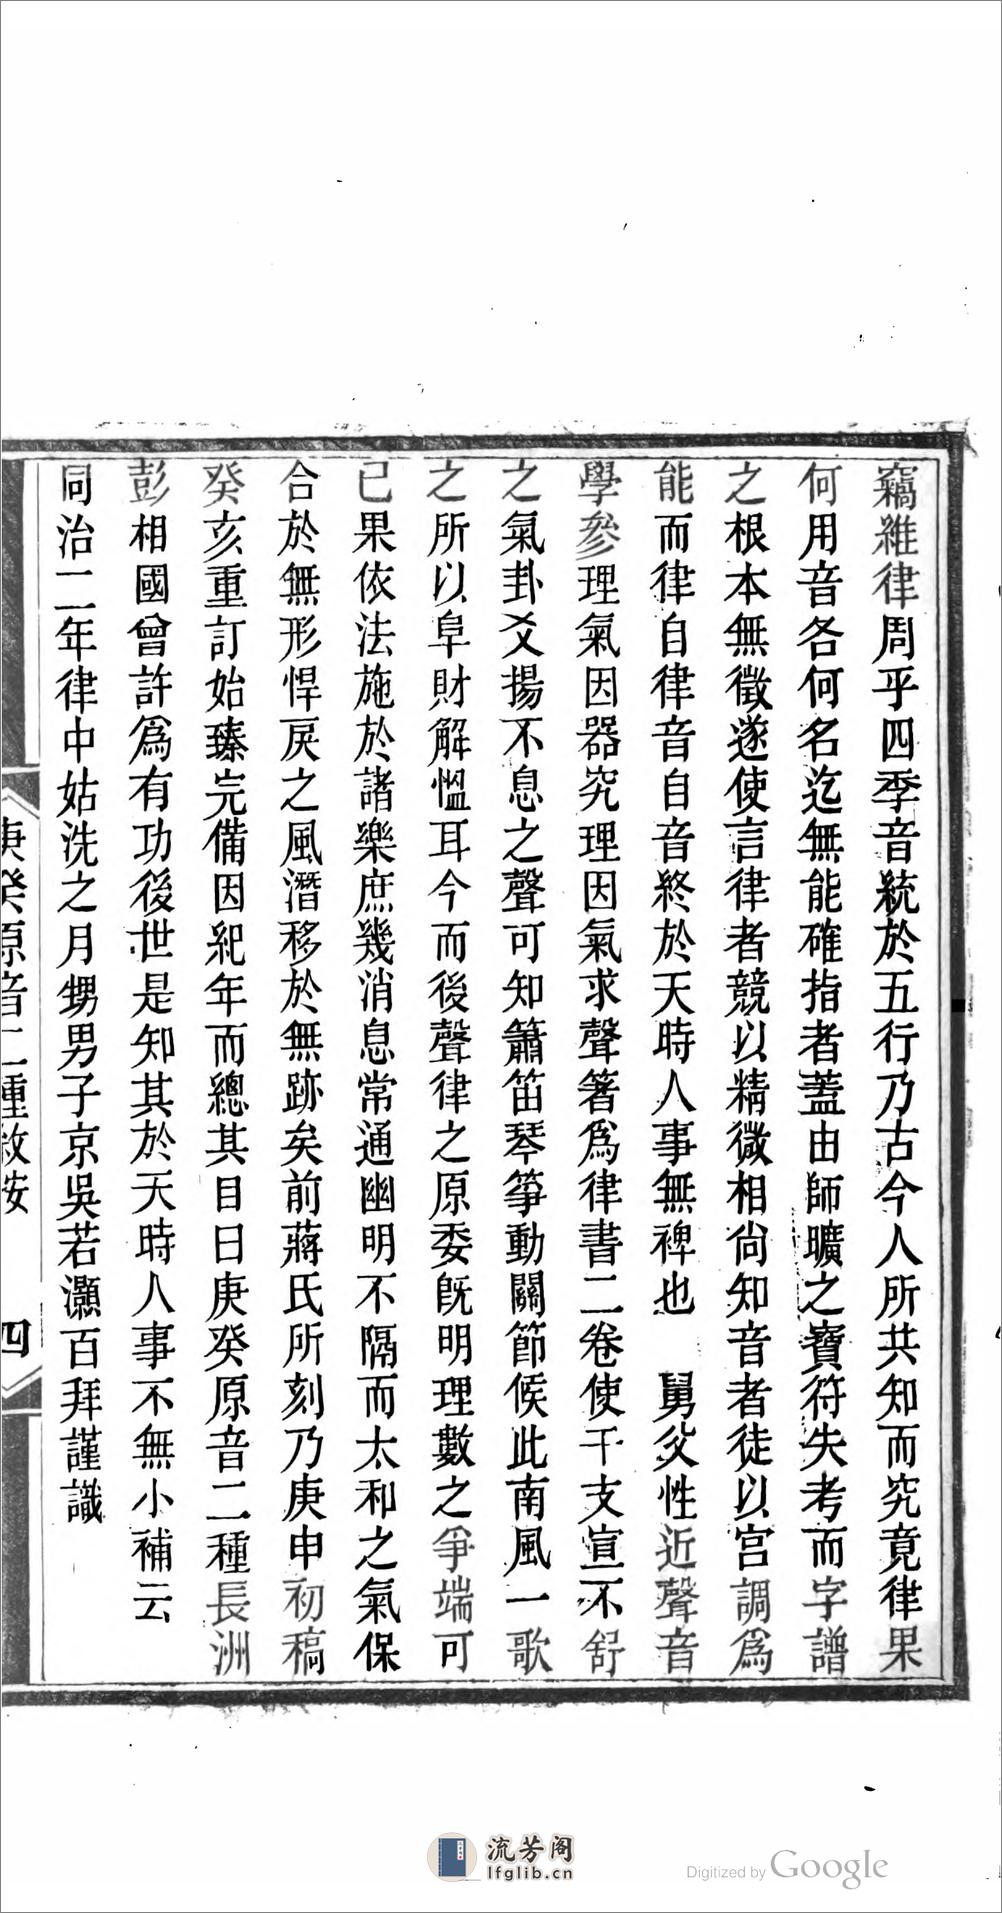 竊維律周乎四季音統於五行乃古今人所共知而究竟律果
何用音各何名迄無能確指者蓋由師曠之寶符失考而字譜
之根本無徵遂使言律者競以精微相尙知音者徒以宮調爲
能而律自律音自音終於天時人事無裨也　舅父性近聲音
學參理氣因器究理因氣求聲箸爲律書二卷使干支宣不舒
之氣卦爻揚不息之聲可知簫笛琴箏動關節候此南風一歌
之所以阜財解慍耳今而後聲律之原委旣明理數之爭端可
已果依法施於諸樂庶幾消息常通幽明不隔而太和之氣保
合於無形悍戾之風潛移於無跡矣前蔣氏所刻乃庚申初稿
癸亥重訂始臻完備因紀年而總其目曰庚癸原音二種長洲
彭相國曾許爲有功後世是知其於天時人事不無小補云
同治二年律中姑洗之月甥男子京吳若灝百拜謹識
庚癸原音二種敘按
四
流芳阁
lfglib.cn
Digitized by Google